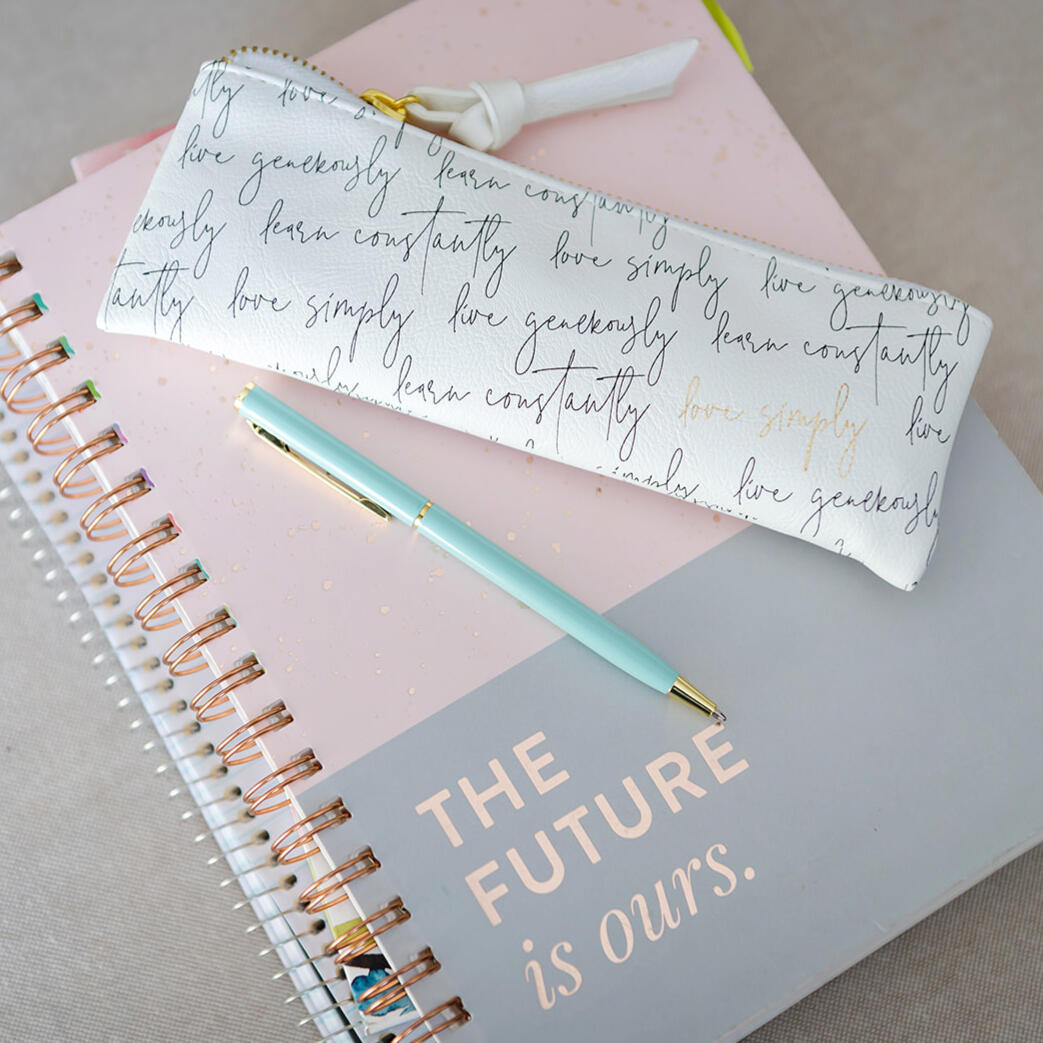 love
live generously learn constantly
learn constantly love simply live generously
love simply live generously learn constantly
learn constantly love simply live
simply live generously
THE
FUTURE
is ours.